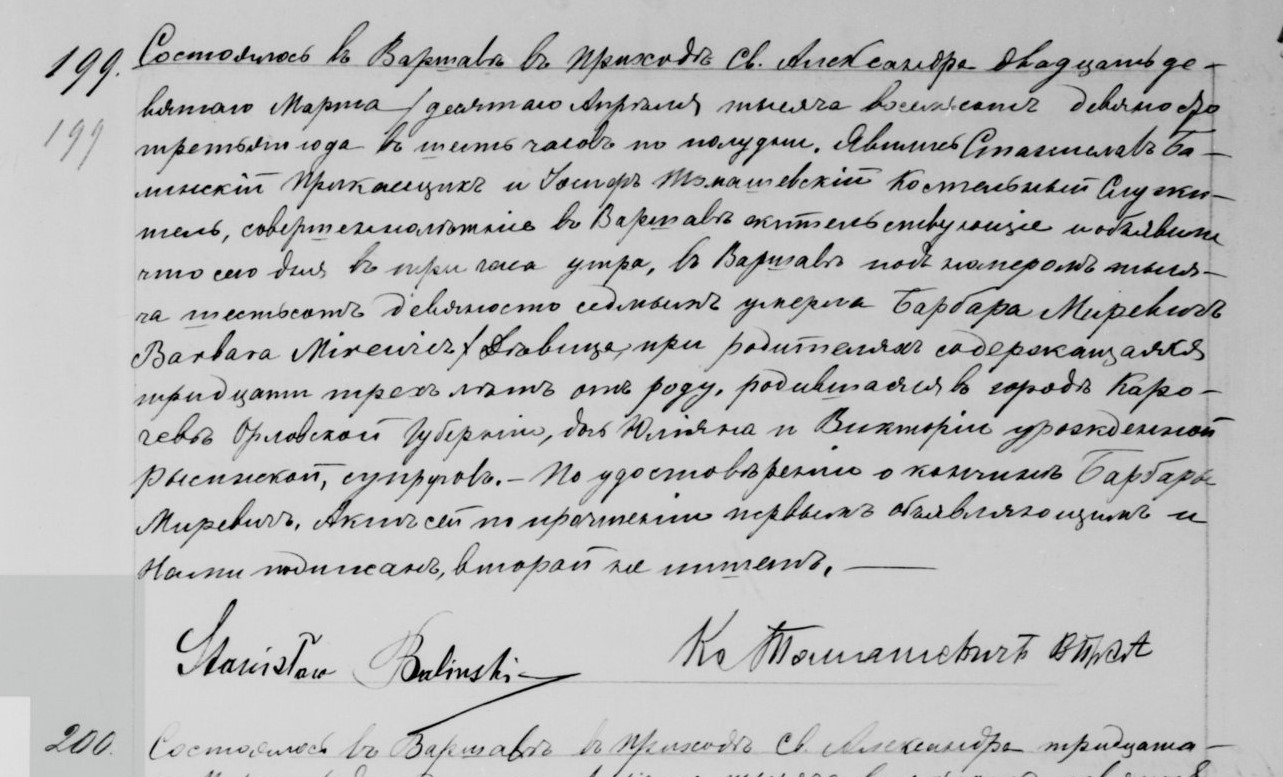 199. Состоялось въ Варшавѣ въ приходѣ Св. Александра двадцать де-
199 вятаго Марта / десятаго Апрѣля тысяча восемьсотъ девяносто
третьяго года въ шесть часовъ по полудни. Явились Станиславъ Ба-
линскій Прикащикъ и Іосифъ Томашевскій Костельный Служи-
тель, совершеннолѣтніе въ Варшавѣ жительствующіе и объявили
что сего дня въ три часа утра, въ Варшавѣ подъ номеромъ тыся-
ча шестьсотъ девяносто седмымъ умерла Барбара Миревичъ
Barbara Mirewicz / дѣвица, при родителяхъ содержащаяся
тридцати трехъ лѣтъ отъ роду, родившаяся въ городѣ Кара-
чевѣ Орловской Губерніи, дочь Юліяна и Викторіи урожденной
супруговъ. – По удостовѣреніи о кончинѣ Барбары
Миревичъ, Актъ сей по прочтеніи первымъ объявляющимъ и
Нами подписанъ, второй не пишетъ. —
Stanisław Baliński Кс Томашевичъ
200. Состоялось въ Варшавѣ въ приходѣ Св. Александра тридцата-